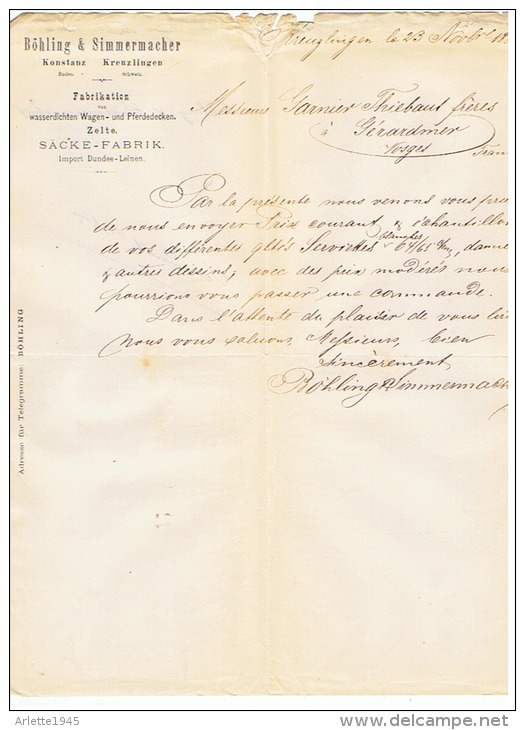 Böhling & Simmermacher
Konstanz Kreuzlingen
Baden. Schweiz.
Fabrikation
von
wasserdichten Wagen- und Pferdedecken.
Zelte.
SÄCKE-FABRIK.
Import Dundee-Leinen.
Adresse für Telegramme: BÖHLING
Kreuzlingen le 23 Novbre 18
Messieurs Garnier Thiebaut frères
à Gérardmer
Vosges
Fran
Par la présente nous venons vous prie
de nous envoyer Prix courant & échantillon
de vos différentes qltés Serviettes blanches 64/65 c/m, dam
& autres dessins; avec des prix modérés nous
pourrions vous passer une commande.
Dans l'attente du plaisir de vous lire
nous vous saluons, Messieurs, bien
sincèrement
Böhling & Simmermach
Arlette1945
delcampe.net